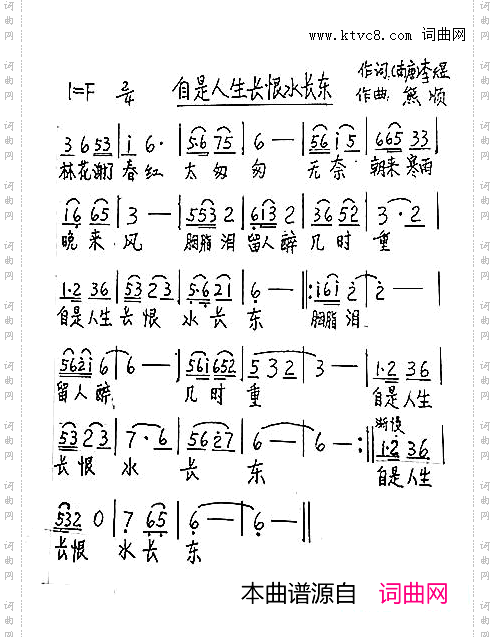 www.ktvc8.com 词曲网
1=F 2/4 自是人生长恨水长东 作词:(南唐)李煜
作曲:熊顺
3 6 5 3 | i 6 · | 5·6 7 5 | 6 — | 5 6 i 5 | 6 6 5 3 3
林花谢了春红 太匆匆 无奈 朝来寒雨
i 6 6 5 | 3 — | 5 5 3 2 | 6 i 3 2 | 3 6 5 2 | 3 · 2 |
晚来风 胭脂泪 留人醉 几时重
1·2 3 6 | 5 3 2 3 | 5·6 2 1 | 6 — ‖: i 6 i 2 | 2 — |
自是人生长恨水长东 胭脂泪
5 6 2 i 6 | 6 — | 5 6 i 6 5 2 | 5 3 2 | 3 — | 1·2 3 6 |
留人醉 几时重 自是人生
5 3 2 3 | 7 · 6 | 5 6 2 7 | 6 — | 6 — :‖ 渐慢 1·2 3 6 |
长恨水长东 自是人生
5 3 2 0 | 7 6 5 | 6 — | 6 — ‖
长恨水长东
本曲谱源自 词曲网
词曲网